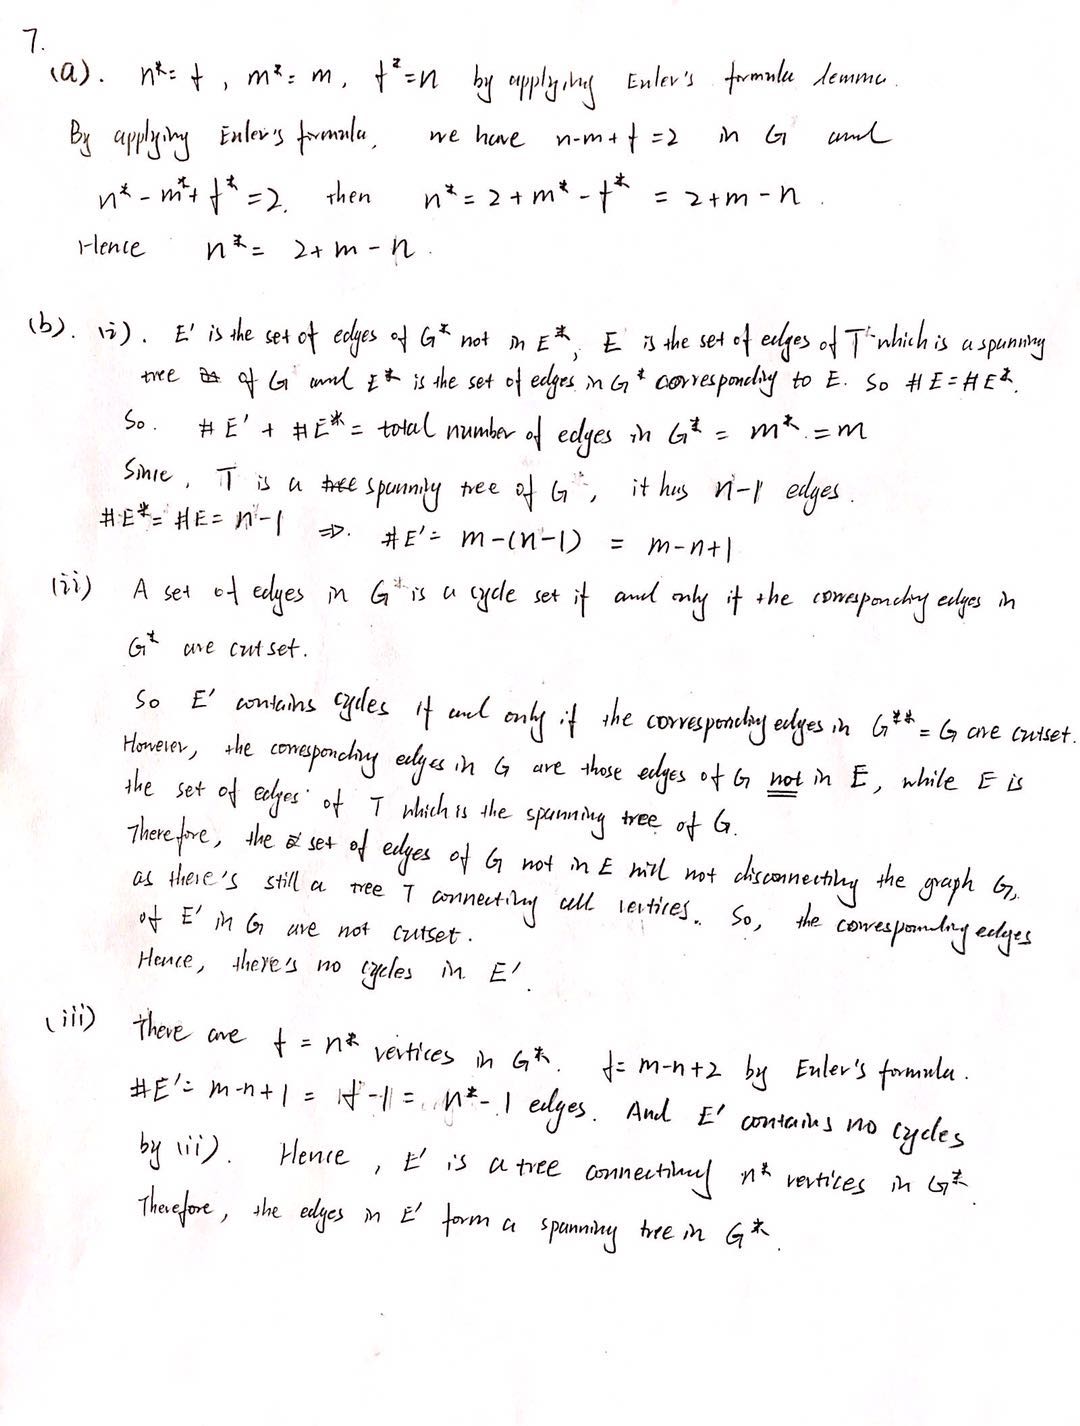 7.
(a). n* = f, m* = m, f* = n by applying Euler's formula lemma.
By applying Euler's formula, we have n-m+f=2 in G and
n* - m* + f* = 2. then n* = 2 + m* - f* = 2+m-n.
Hence n* = 2+m-n.
(b). (i). E' is the set of edges of G* not in E*, E is the set of edges of T which is a spanning
tree of G and E* is the set of edges in G* corresponding to E. So #E = #E*.
So. #E' + #E* = total number of edges in G* = m* = m
Since, T is a spanning tree of G, it has n-1 edges.
#E* = #E = n-1 ⇒. #E' = m-(n-1) = m-n+1
(ii) A set of edges in G* is a cycle set if and only if the corresponding edges in
G* are cutset.
So E' contains cycles if and only if the corresponding edges in G** = G are cutset.
However, the corresponding edges in G are those edges of G not in E, while E is
the set of edges of T which is the spanning tree of G.
Therefore, the set of edges of G not in E will not disconnecting the graph G,
as there's still a tree T connecting all vertices. So, the corresponding edges
of E' in G are not cutset.
Hence, there's no cycles in E'.
(iii) There are f = n* vertices in G*. f = m-n+2 by Euler's formula.
#E' = m-n+1 = f-1 = n*-1 edges. And E' contains no cycles
by (ii). Hence, E' is a tree connecting n* vertices in G*
Therefore, the edges in E' form a spanning tree in G*.